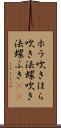 ホラ吹きほら
吹き法螺吹き
法螺ふき